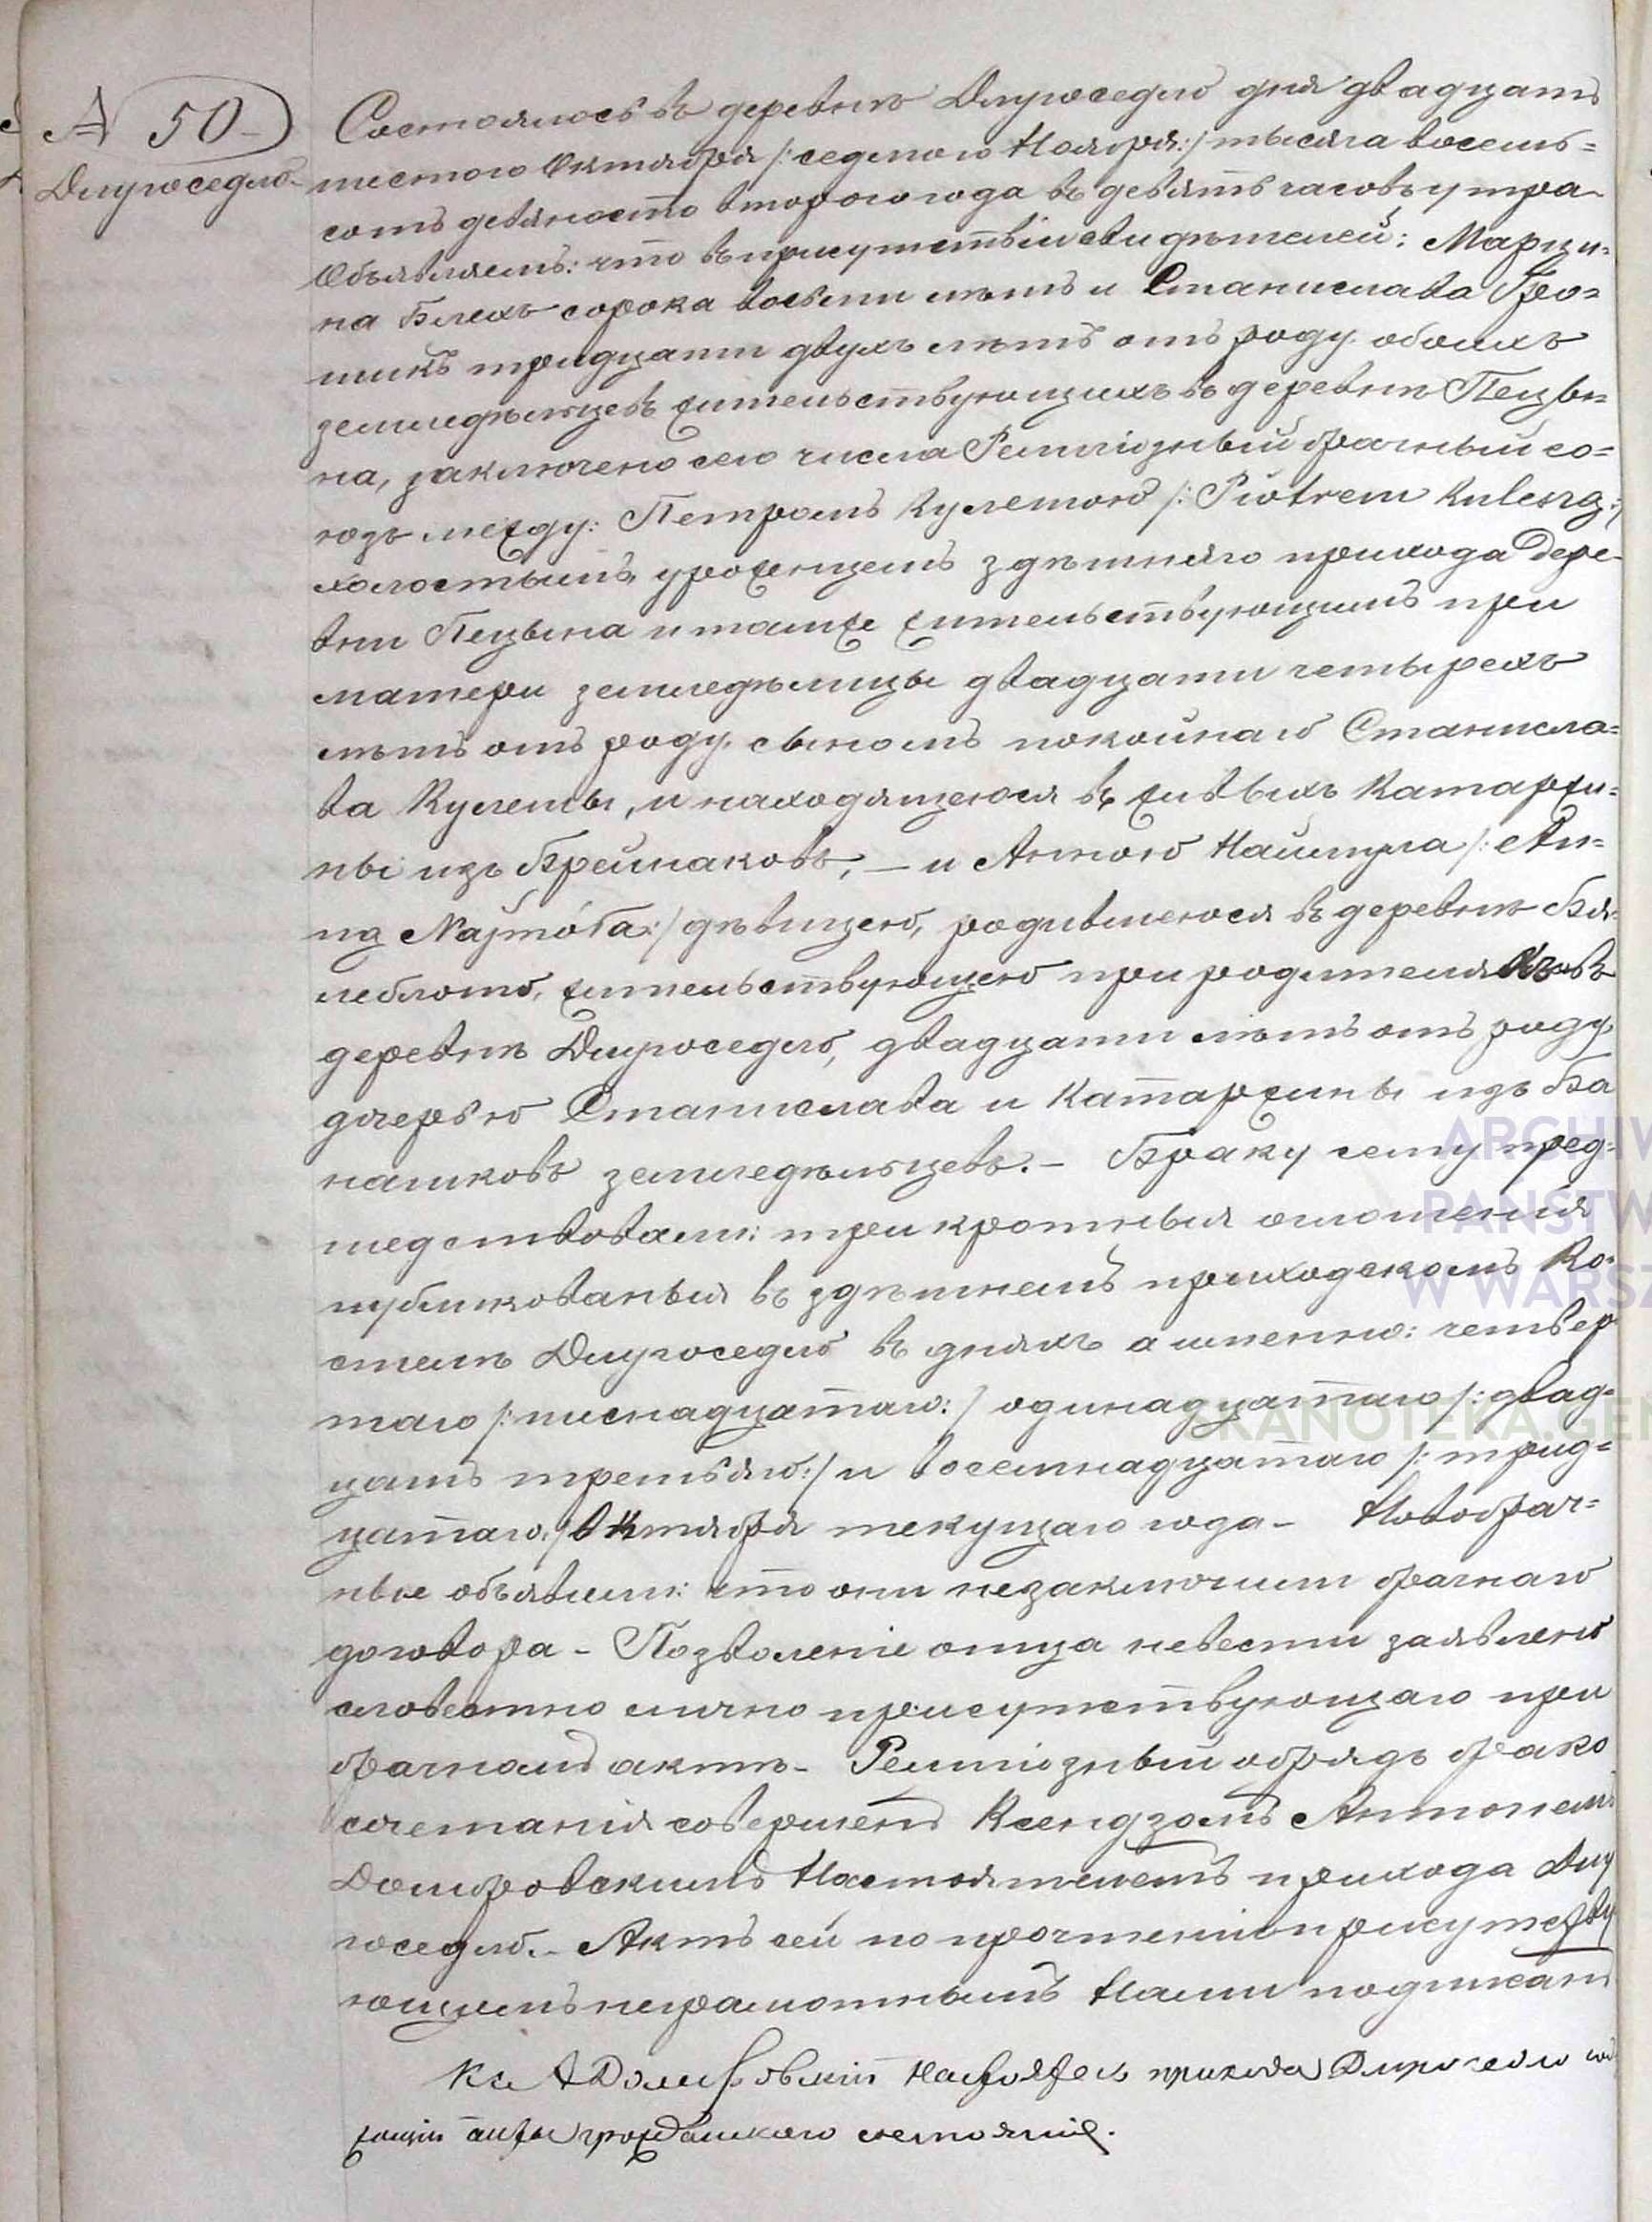 № 50
Длугоседло
Состоялось въ деревнѣ Длугоседло дня двадцать
шестого Октября /: седмого Ноября :/ тысяча восемь=
сотъ девяносто второго года въ девять часовъ утра
Объявляемъ: что въ присутствіи свидѣтелей: Марци=
на Блехъ сорока восьми лѣтъ и Станислава Гро=
шикъ тридцати двухъ лѣтъ отъ роду обоихъ
земледѣльцевъ жительствующихъ въ деревнѣ Пецы=
на, заключено сего числа Религіозный брачный со=
юзъ между: Петромъ Кулешою /: Piotrem Kuleszą :/
холостымъ, уроженцемъ здѣшняго прихода Дере
вни Пецына и тамже жительствующимъ при
матери земледѣлицы двадцати четырехъ
лѣтъ отъ роду, сыномъ покойнаго Станисла=
ва Кулеши, и находящеюся въ живыхъ Катаржи=
ны изъ Брейнаковъ, — и Анною Наймула /: An=
ną Najmóła :/ дѣвицею, родившеюся въ деревнѣ Бя=
леблото, жительствующею при родителяхъ въ
деревнѣ Длугоседло, двадцати лѣтъ отъ роду
дочерью Станислава и Катаржины изъ Ба
нашковъ земледѣльцевъ. — Браку сему пред=
шедствовали: трикротныя оглошенія
публикованыя въ здѣшнемъ приходскомъ Ко=
стелѣ Длугоседло въ дняхъ а именно: четвер
таго /: шеснадцатаго :/ одинадцатаго /: двад=
цать третьяго :/ и восемнадцатаго /: трид=
цатаго :/ Октября текущаго года — Новобрач=
ные объявили: что они незаключили брачнаго
договора — Позволеніе отца невести заявлено
словестно лично присутствующаго при
брачномъ актѣ — Религіозный обрядъ брако
сочетанія совершенъ Ксендзомъ Антонемъ
Домбровскимъ Настоятелемъ прихода Длу
госедло. — Актъ сей по прочтеніи присутству
ющимъ неграмотнымъ Нами подписанъ
Кс А Домбровскій Настоятель прихода Длугоседло со
жащій акты гражданскаго состоянія.
ARCHIW
PAŃSTW
W WARSZ
SKANOTEKA.GEN